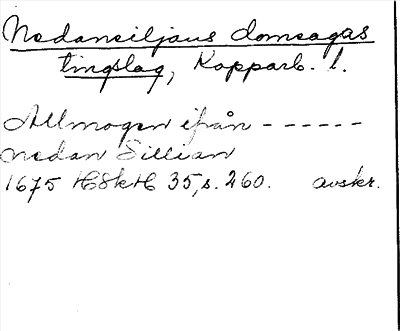 Nedansiljans domsagas
tingslag, Kopparb. l.
Allmogen ifrån ------
nedan Sillian
1675 HSkH 35, s. 260. avskr.